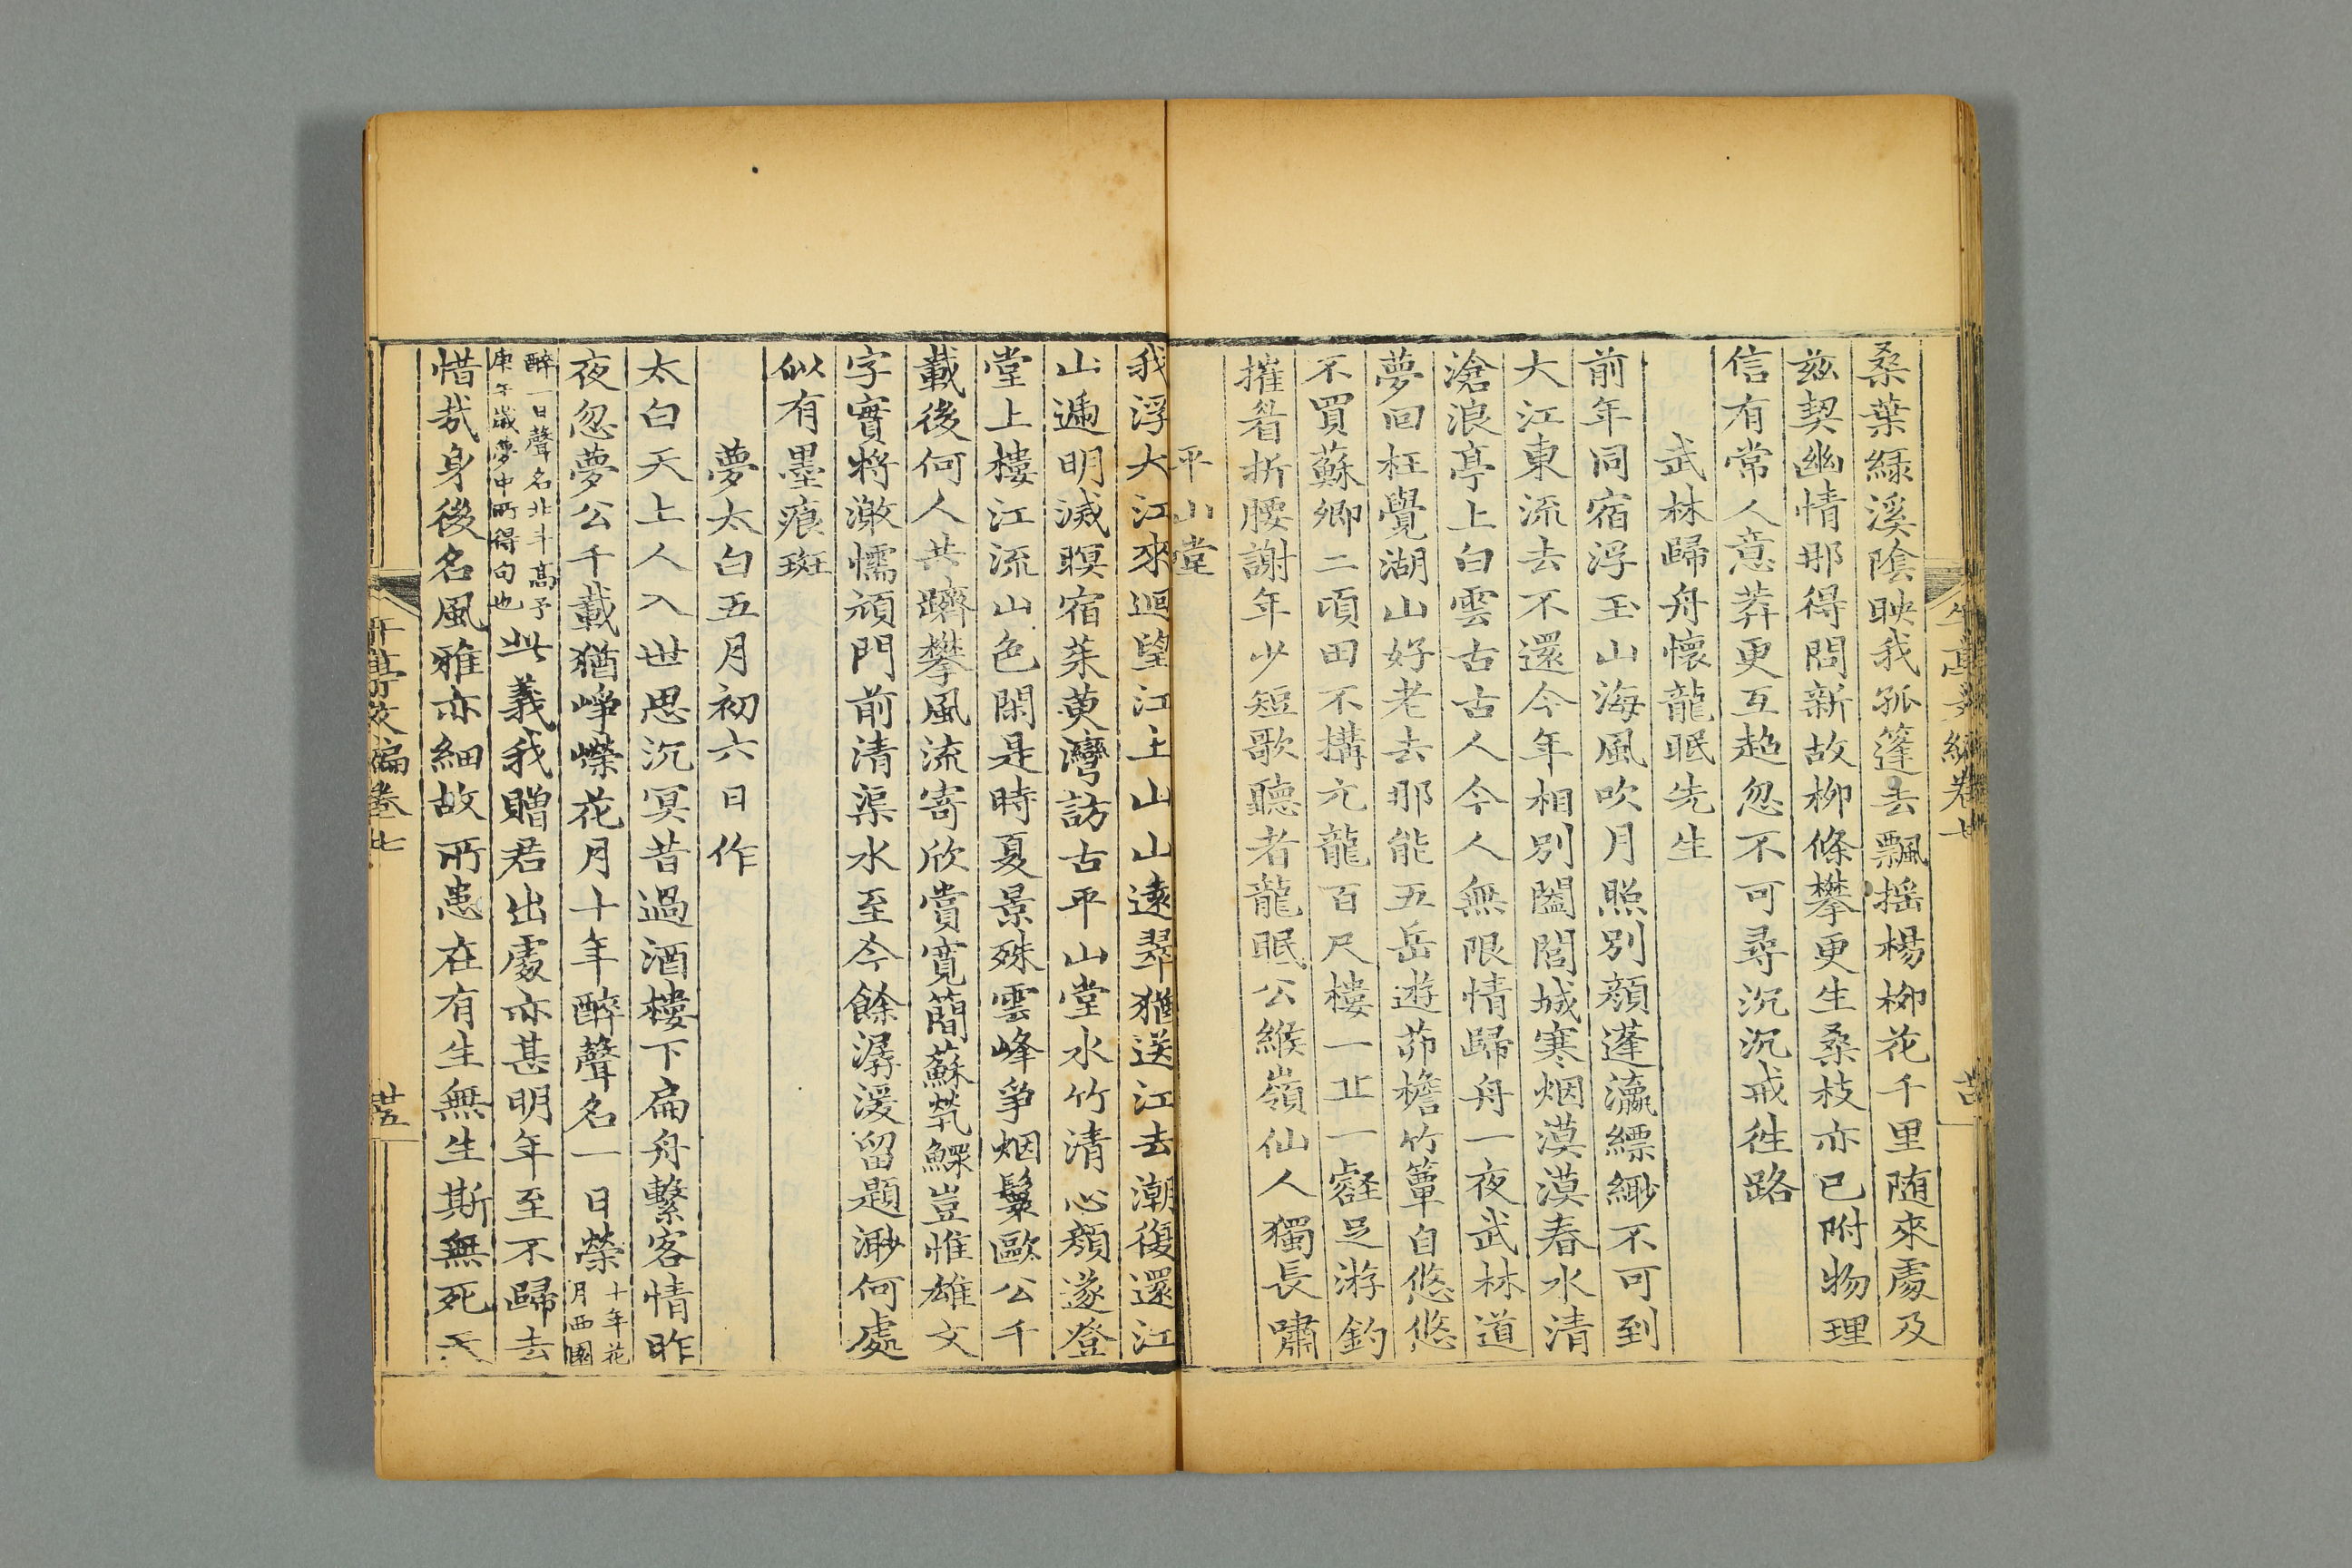 桑葉緑溪陰映我孤篷去飄揺楊柳花千里随來處及
兹契幽情那得問新故柳條攀更生桑枝亦已附物理
信有常人意莽更互趋忽不可尋沉沉戒徃路
武林歸舟懷龍眠先生
前年同宿浮玉山海風吹月照别顔蓬瀛縹緲不可到
大江東流去不還今年相别闔閭城寒烟漠漠春水清
滄浪亭上白雲古古人今人無限情歸舟一夜武林道
夢回枉覺湖山好老去那能五岳遊茆檐竹簟自悠悠
不買蘇卿二頃田不搆元龍百尺樓一丘一壑足游釣
摧眉折腰謝年少短歌聽者龍眠公緱嶺仙人獨長嘯
平山堂
我浮大江來迴望江上山山遠翠猶送江去潮復還江
山遞明滅暝宿茱萸灣訪古平山堂水竹清心顔遂登
堂上樓江流山色閑是時夏景殊雲峰爭烟鬟歐公千
載後何人共躋攀風流寄欣賞寛簡蘇煢鰥豈惟雄文
字實將激懦頑門前清渠水至今餘潺湲留題渺何處
似有墨痕斑
夢太白五月初六日作
太白天上人入世思沉冥昔過酒樓下扁舟繫客情昨
夜忽夢公千載猶崢嶸花月十年醉聲名一日榮十年花月西園
醉一日聲名北斗高予庚午歲夢中所得句也此義我贈君出處亦甚明年至不歸去
惜哉身後名風雅亦細故所患在有生無生斯無死天
卷七
廿五